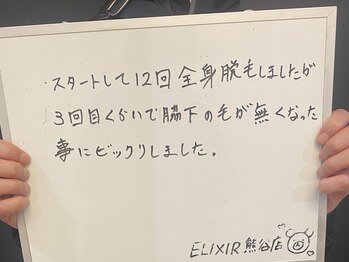 ・スタートして12回全身脱毛しましたが
3回目くらいで脇下の毛が無くなった
事にビックリしました。
ELIXIR熊谷店